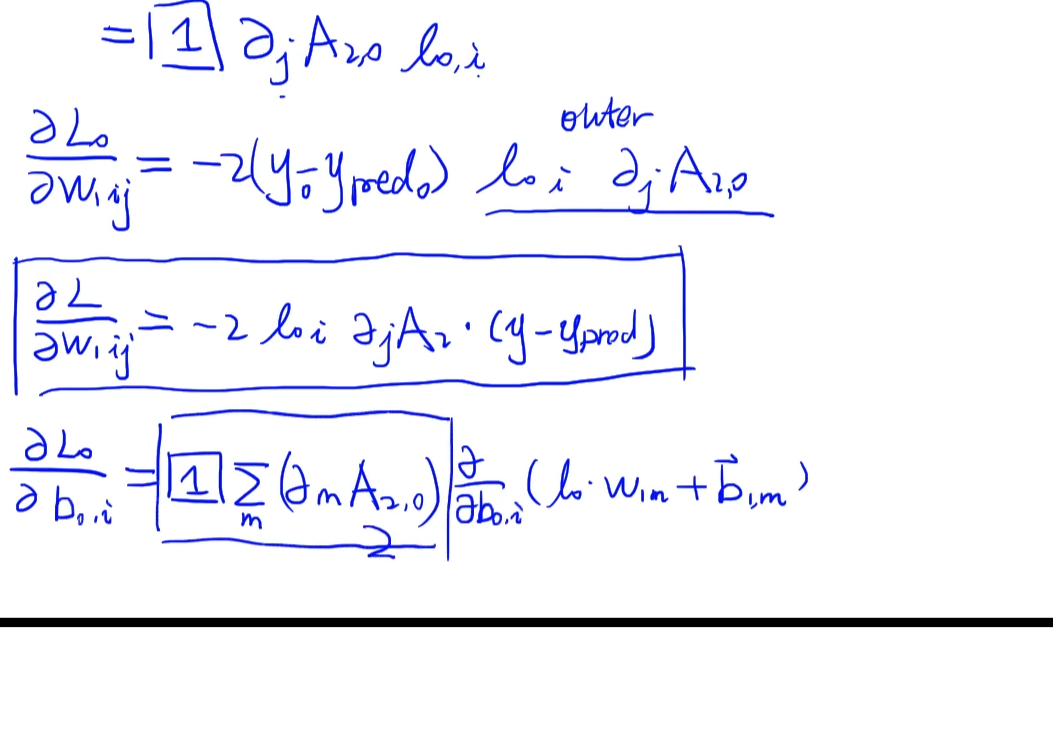 = 1 ∂j A2,0 l0,i
outer
∂L0/∂W1 ij = -2(y0-ypred0) l0 i ∂j A2,0
∂L/∂W1 ij = -2 l0 i ∂jA2 · (y-ypred)
∂L0/∂b0,i = 1 Σm (∂m A2,0) ∂/∂b0,i (l0 · W1m + b⃗1,m)
2